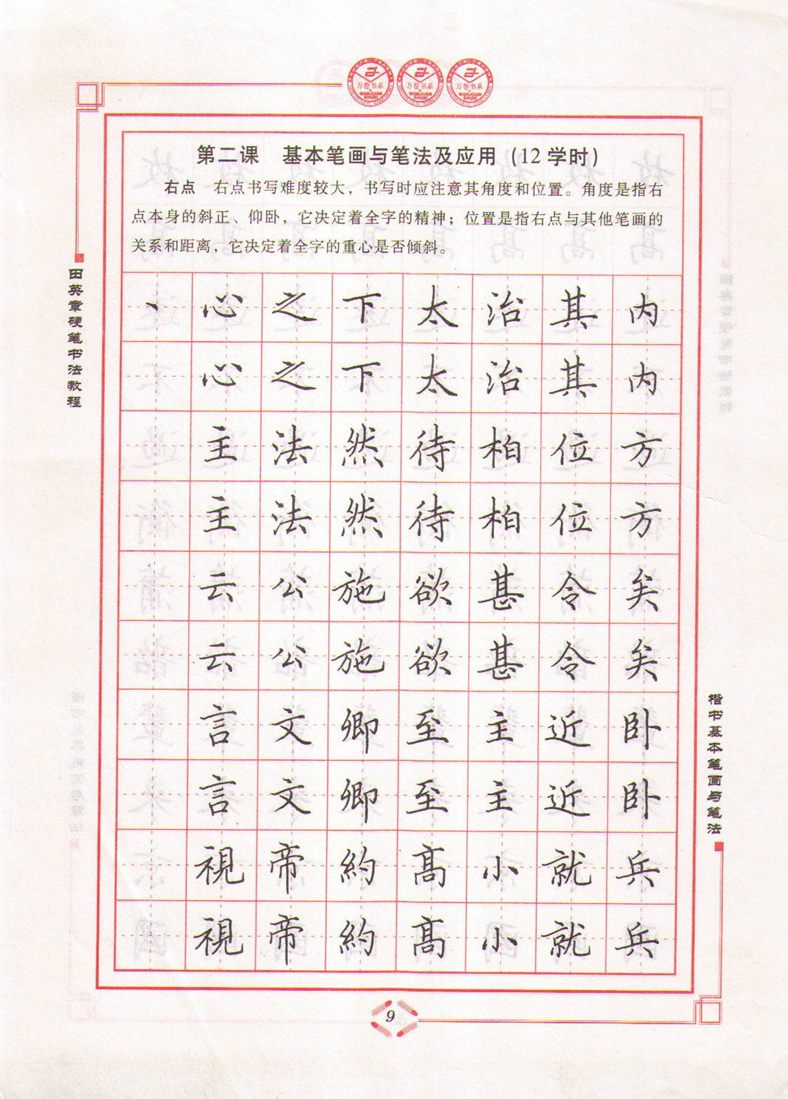 万卷书系 万卷书系 万卷书系
WANJUAN SHUXI WANJUAN SHUXI WANJUAN SHUXI
第二课 基本笔画与笔法及应用(12学时)
右点 右点书写难度较大，书写时应注意其角度和位置。角度是指右
点本身的斜正、仰卧，它决定着全字的精神；位置是指右点与其他笔画的
关系和距离，它决定着全字的重心是否倾斜。
丶 心 之 下 太 治 其 内
心 之 下 太 治 其 内
主 法 然 待 柏 位 方
主 法 然 待 柏 位 方
云 公 施 欲 甚 令 矣
云 公 施 欲 甚 令 矣
言 文 卿 至 主 近 卧
言 文 卿 至 主 近 卧
視 帝 約 髙 小 就 兵
視 帝 約 髙 小 就 兵
田英章硬笔书法教程
楷书基本笔画与笔法
9